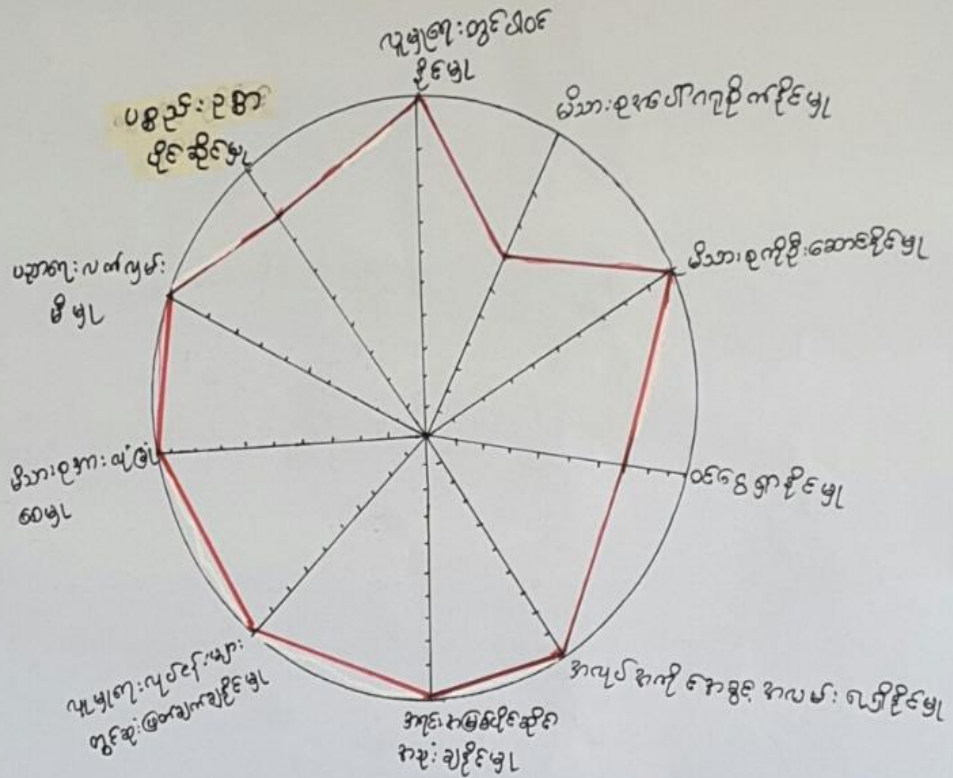 လူမှုရေးတွင်ပါဝင်
နိုင်မှု
မိသားစုအပေါ်ဂရုစိုက်နိုင်မှု
မိသားစုကိုဦးဆောင်နိုင်မှု
ဝင်ငွေရှာနိုင်မှု
အလုပ်အကိုင်အခွင့်အလမ်းရရှိနိုင်မှု
အရင်းအမြစ်ပိုင်ဆိုင်
အသုံးချနိုင်မှု
လူမှုရေးလုပ်ငန်းများ
တွင်ဆုံးဖြတ်ချက်ချနိုင်မှု
မိသားစုအားလုံခြုံ
စေမှု
ပညာရေးလက်လှမ်း
မီမှု
ပစ္စည်းဥစ္စာ
ပိုင်ဆိုင်မှု